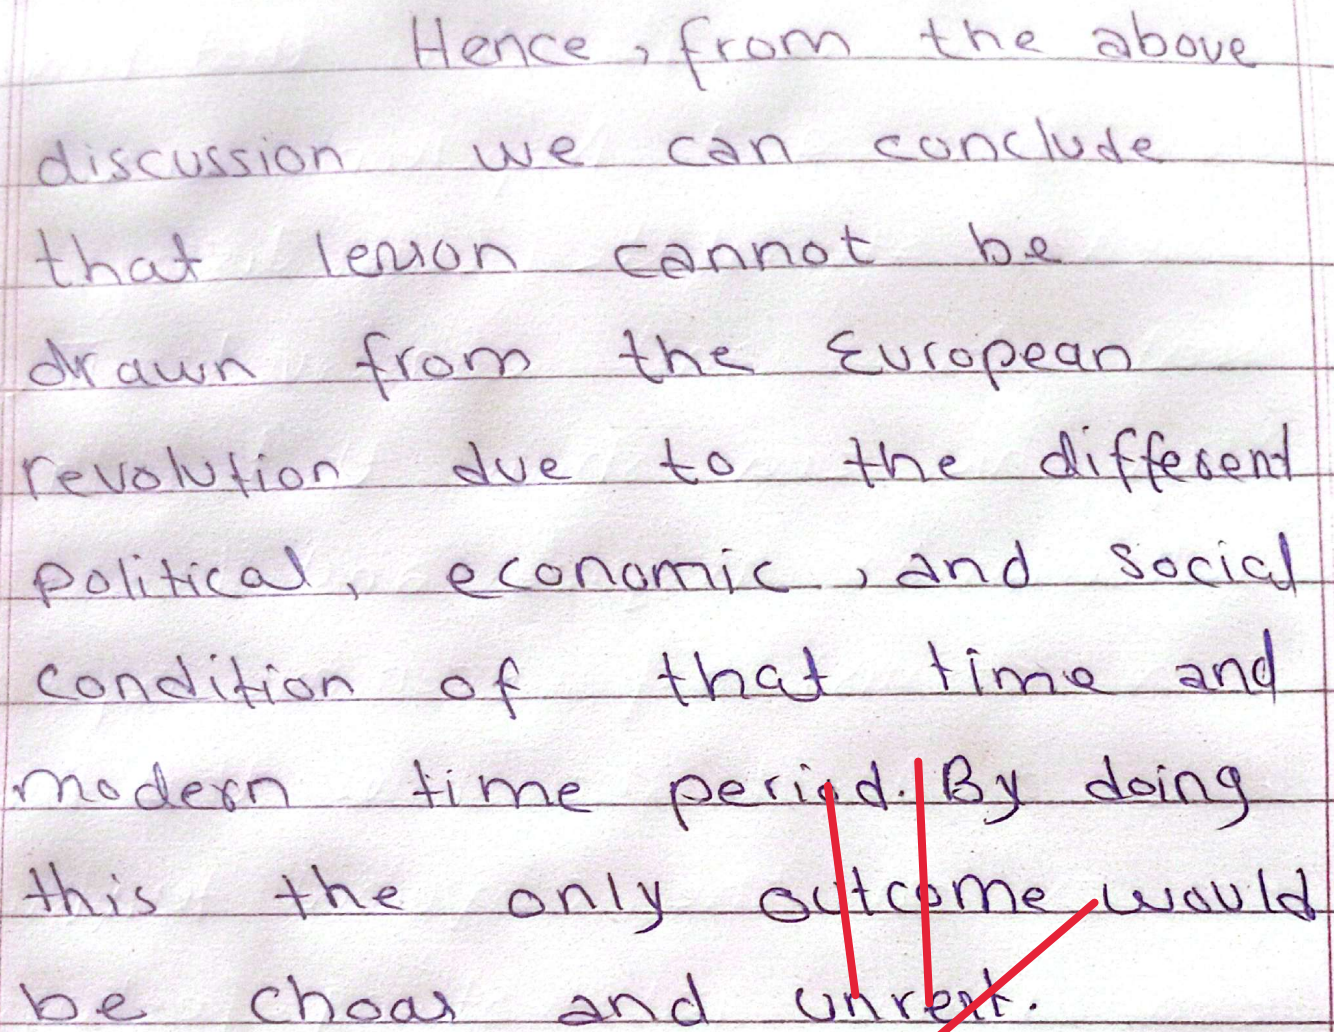 Hence, from the above
discussion we can conclude
that lesson cannot be
drawn from the European
revolution due to the different
political, economic, and social
condition of that time and
modern time period. By doing
this the only outcome would
be choas and unrest.